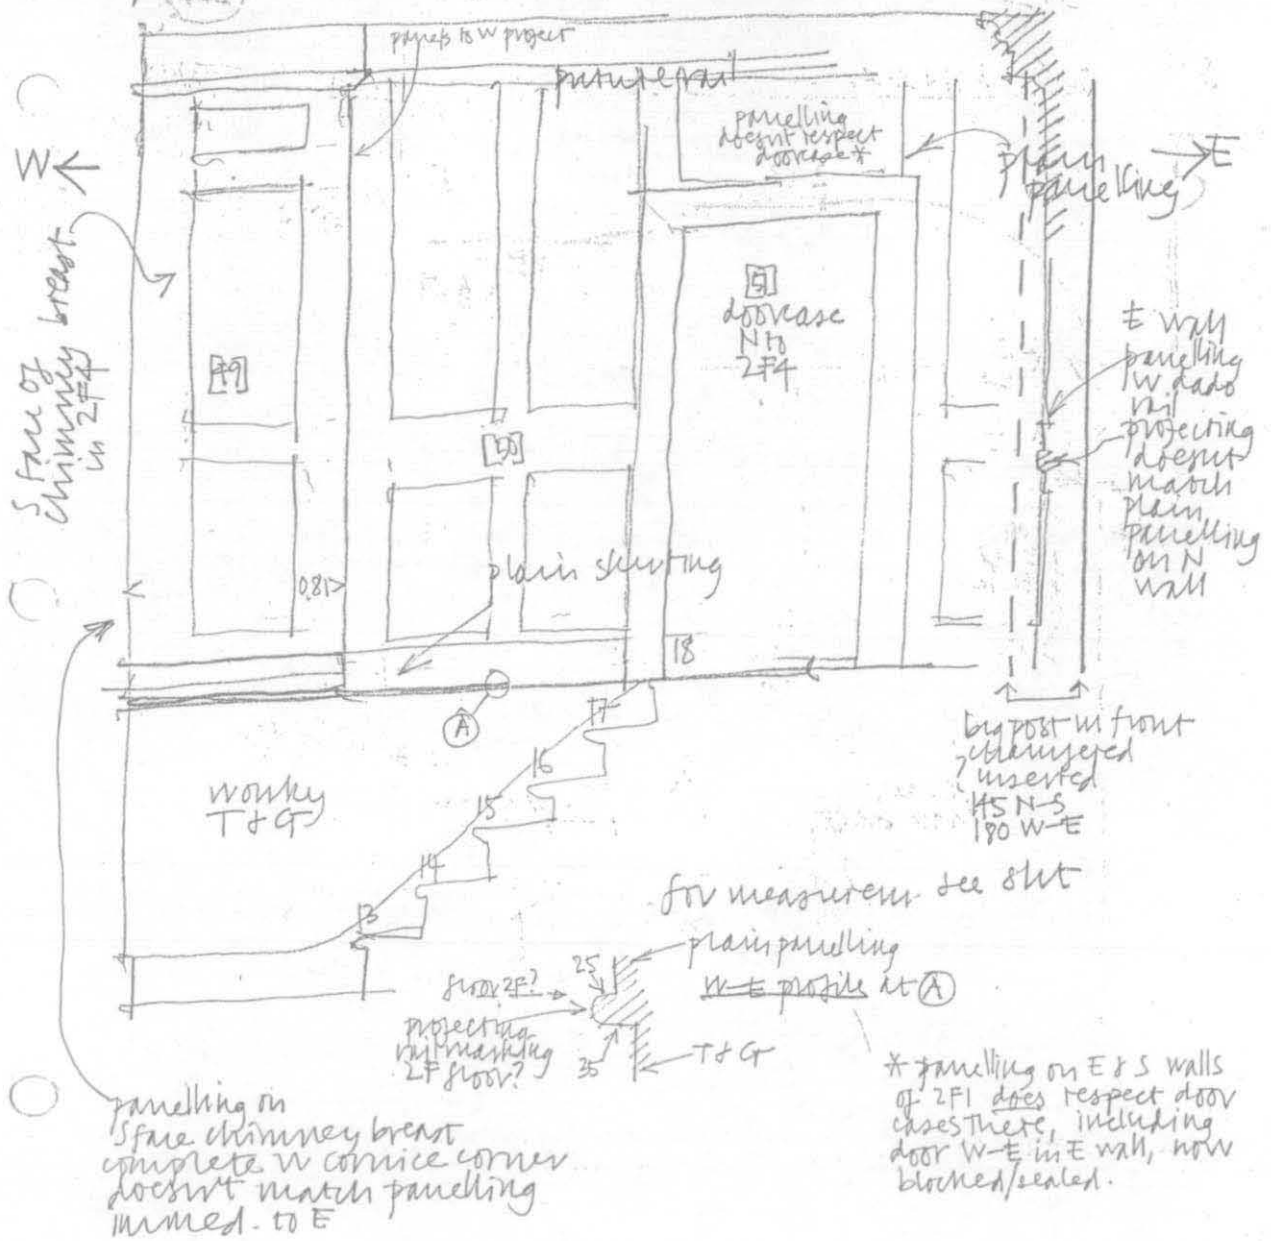 panels to W project
picture rail
panelling
doesn't respect
doorcase*
plain
panelling
W
E
S face of
chimney breast
in 2F4
[49]
[50]
[51]
doorcase
N to
2F4
E wall
panelling
W dado
rail
projecting
doesnt
match
plain
panelling
on N
wall
0.81
plain skirting
18
A
17
16
15
14
13
wonky
T & G
big post in front
chamfered
? inserted
145 N-S
180 W-E
for measurem. see sht
plain panelling
W-E profile at A
25
floor 2F?
projecting
rail marking
2F floor?
35
T & G
panelling on
S face chimney breast
complete W cornice corner
doesn't match panelling
immed. to E
* panelling on E & S walls
of 2F1 does respect door
cases there, including
door W-E in E wall, now
blocked/sealed.